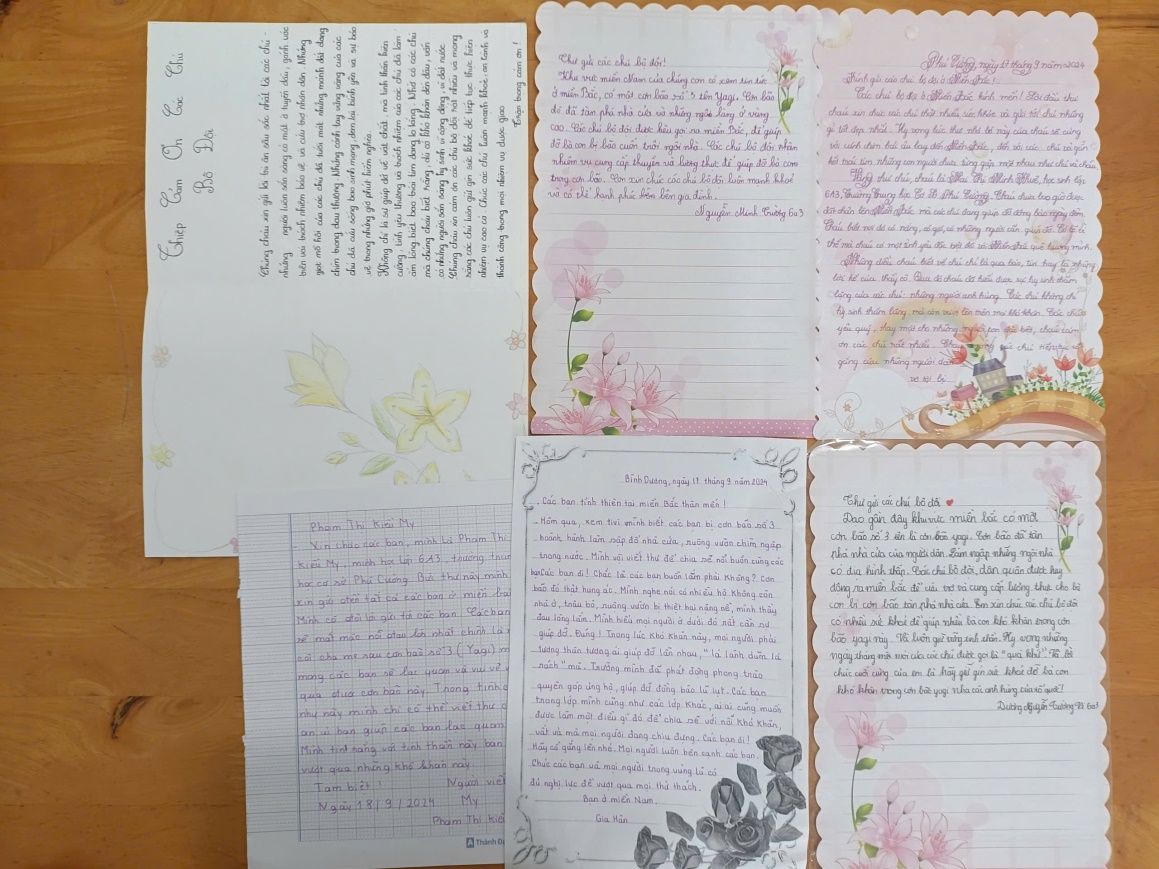 Thiệp Cảm Ơn Các Chú
Bộ Đội
Chúng cháu xin gửi lời tri ân sâu sắc nhất tới các chú -
những người luôn sẵn sàng có mặt ở tuyến đầu, gánh vác
trên vai trách nhiệm bảo vệ và cứu trợ nhân dân. Những
giọt mồ hôi của các chú đã tưới mát những mảnh đất đang
chìm trong đau thương. Những cánh tay vững vàng của các
chú đã cứu sống bao sinh mạng, đem lại bình yên và sự bảo
vệ trong những giờ phút hiểm nghèo.
Không chỉ là sự giúp đỡ về vật chất, mà tinh thần kiên
cường, tình yêu thương và trách nhiệm của các chú đã làm
ấm lòng biết bao trái tim đang lo lắng. Nhờ có các chú
mà chúng cháu biết rằng, dù có khó khăn đến đâu, vẫn
có những người sẵn sàng hy sinh vì cộng đồng, vì đất nước.
Chúng cháu xin cảm ơn các chú bộ đội rất nhiều và mong
rằng các chú luôn giữ gìn sức khoẻ để tiếp tục thực hiện
nhiệm vụ cao cả. Chúc các chú luôn mạnh khoẻ, an lành và
thành công trong mọi nhiệm vụ được giao.
Trân trọng cảm ơn!
Thư gửi các chú bộ đội!
Khu vực miền Nam của chúng con có xem tin tức
ở miền Bắc, có một cơn bão số 3 tên Yagi. Cơn bão
đó đã tàn phá nhà cửa và những ngôi làng ở vùng
cao. Các chú bộ đội được kêu gọi ra miền Bắc, để giúp
đỡ bà con bị bão cuốn trôi ngôi nhà. Các chú bộ đội nhận
nhiệm vụ cung cấp thuyền và lương thực để giúp đỡ bà con
trong cơn bão. Con xin chúc các chú bộ đội luôn mạnh khoẻ
và có thể hạnh phúc bên gia đình.
Nguyễn Minh Trường 6a3
Phú Cường, ngày 17 tháng 9 năm 2024
Kính gửi các chú bộ đội ở Miền Bắc!
Các chú bộ đội ở Miền Bắc kính mến! Lời đầu thư
cháu xin chúc các chú thật nhiều sức khỏe và gửi tới chú những
gì tốt đẹp nhất. Hy vọng bức thư nhỏ bé này của cháu sẽ cùng
Trường Trung học Cơ Sở Phú Cường. Cháu chưa bao giờ được
Những điều cháu biết về chú chỉ là qua báo, tin hay là những
lời kể của thầy cô. Qua đó cháu đã hiểu được sự hy sinh thầm
lặng của các chú: những người anh hùng. Các chú không chỉ
hy sinh thầm lặng mà còn
yêu quý, thay mặt cho những
ơn các chú rất nhiều.
Phạm Thị Kiều My
Xin chào các bạn, mình là Phạm Thị
Kiều My, mình học lớp 6A3, trường trung
học cơ sở Phú Cường. Bức thư này mình
xin gửi đến tất cả các bạn ở miền bắc
Mình có đôi lời gửi tới các bạn. Các bạn
sẽ mất mác nỗi đau lớn nhất chính là
cái cha mẹ sau cơn bão số 3 (Yagi) m
mong các bạn sẽ lạc quan và vui vẻ v
qua đưa cơn bão này. Trong tình c
như này mình chỉ có thể viết thư
an ủi bạn giúp các bạn lạc quan
Mình tin rằng với tinh thần này bạn
vượt qua những khó khăn này
Tạm biệt! Người viết
Ngày 18/9/2024 My
Phạm Thị Kiều
Thành
Bình Dương, ngày 17 tháng 9 năm 2024
Các bạn tỉnh thiên tai miền Bắc thân mến!
Hôm qua, xem tivi mình biết các bạn bị cơn bão số 3
hoành hành làm sập đổ nhà cửa, ruộng vườn chìm ngập
trong nước. Mình vội viết thư để chia sẽ nỗi buồn cùng các
bạn. Các bạn ơi! Chắc là các bạn buồn lắm phải không? Cơn
bão đó thật hung ác. Mình nghe nói có nhiều hộ không còn
nhà ở, trâu bò, ruộng vườn bị thiệt hại nặng nề, mình thấy
đau lòng lắm. Mình hiểu mọi người ở dưới đó rất cần sự
giúp đỡ. Đúng! Trong lúc khó khăn này, mọi người phải
tương thân tương ái giúp đỡ lẫn nhau, "lá lành đùm lá
rách" mà. Trường mình đã phát động phong trào
quyên góp ủng hộ, giúp đỡ đồng bào lũ lụt. Các bạn
trong lớp mình cũng như các lớp khác, ai ai cũng muốn
được làm một điều gì đó để chia sẽ với nỗi khó khăn,
vất vả mà mọi người đang chịu đựng. Các bạn ơi!
Hãy cố gắng lên nhé. Mọi người luôn bên cạnh các bạn.
Chúc các bạn và mọi người trong vùng lũ có
đủ nghị lực để vượt qua mọi thử thách.
Bạn ở miền Nam.
Gia Hân
Thư gửi các chú bộ đội
Dạo gần đây khu vực miền bắc có một
cơn bão số 3 tên là cơn bão yagi. Cơn bão đã tàn
phá nhà cửa của người dân. Làm ngập những ngôi nhà
có địa hình thấp. Các chú bộ đội, dân quân được huy
động ra miền bắc để cứu trợ và cung cấp lương thực cho bà
con bị cơn bão tàn phá nhà cửa. Em xin chúc các chú bộ đội
có nhiều sức khoẻ để giúp nhiều bà con khó khăn trong cơn
bão yagi này. Và luôn giữ vững tinh thần. Hy vọng những
ngày tháng mới của các chú được gọi là "quá khứ". Và lời
chúc cuối cùng của em là hãy giữ gìn sức khoẻ để bà con
khó khăn trong cơn bão yagi nha các anh hùng của tổ quốc!
Dương Nguyễn Tường Vi 6a3